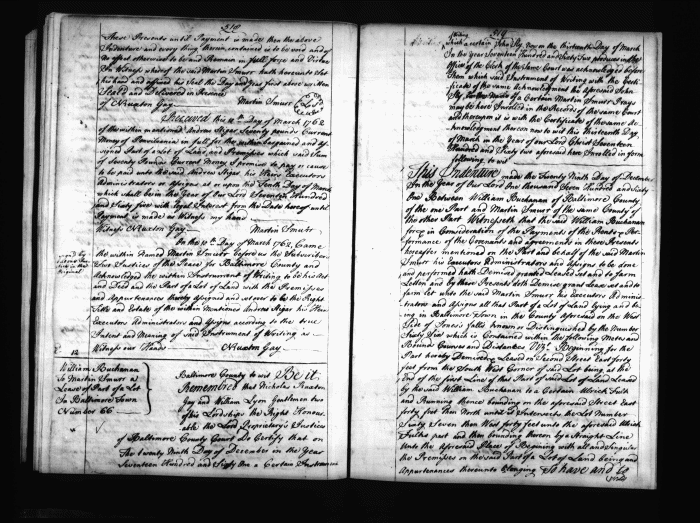 518
These Presents until Payment is made then the above
Indenture and every thing therein contained is to be void and of
no effect otherwise to be and Remain in full force and Virtue
In Witness whereof the said Martin Smurr hath hereunto Set
his hand and affixed his Seal the Day and first above written
Sealed and Delivered in Presence
of N Ruxton Gay Martin Smurr
Received this 10th Day of March 1762
of the within mentioned Andrew Stigar Seventy pounds Current
Money of Pensilvania in full for the within bargained and as
signed Part of a Lot of Land, and Premises which said Sum
of Seventy Pounds Current Money I promise to pay or cause
to be paid unto the said Andrew Stigar his Heirs Executors
Administrators or Assigns at or upon the Tenth Day of March
which shall be in the Year of our Lord Seventeen Hundred
and Sixty five with Legal Interest from the Date hereof until
Payment is made as Witness my hand
Witness N Ruxton Gay Martin Smurr
On the 10th Day of March 1762 Came
the within Named Martin Smurr before us the Subscribers
Two Justices of the Peace for Baltimore County and
Acknowledged the within Instrument of Writing to be his Act
and Deed and the Part of a Lot of Land with the Premises
and Appurtenances thereby Assigned and set over to be the Right
Title and Estate of the within Mentioned Andrew Stigar his Heirs
Executors Administrators and Assigns according to the true
Intent and Meaning of said Instrument of Writing as
Witness our Hands N Ruxton Gay
William Buchanan
To Martin Smurr a
Lease of Part of a Lot
In Baltimore Town
Number 66
Baltimore County to wit Be it
Remembred that Nicholas Ruxton
Gay and William Lyon Gentlemen two
of his Lordships the Right Honour
able the Lord Proprietary's Justices
of Baltimore County Court Do Certify that on
The twenty Ninth Day of December in the Year
Seventeen Hundred and Sixty One a Certain Instrument
519
which a certain John Sly now on the thirteenth Day of March
In the year Seventeen Hundred and Sixty Two produced in the
Office of the Clerk of the Same Court was acknowledged before
Them which said Instrument of Writing with the Certi
ficate of the same Acknowledgment the aforesaid John
Sly for the of a Certain Martin Smurr Prays
may be here Enrolled in the Records of the same Court
and thereupon it is with the Certificate of the same Ac
knowledgment thereon now to wit this thirteenth Day
of March in the Year of our Lord Christ Seventeen
Hundred and Sixty two aforesaid here Enrolled in form
following to wit
This Indenture made the Twenty Ninth Day of December
In the Year of our Lord One thousand Seven Hundred and Sixty
One Between William Buchanan of Baltimore County
of the one Part and Martin Smurr of the same County of
the other Part Witnesseth that the said William Buchanan
for & in Consideration of the Payments of the Rents & Per
formance of the Covenants and agreements in these Presents
hereafter mentioned on the Part and behalf of the said Martin
Smurr his Executors Administrators and Assigns to be done
and performed hath Demised granted Leased set and to farm
Letten and by these Presents doth Demise grant lease set and to
farm let unto the said Martin Smurr his Executors Adminis
trators and Assigns all that Part of a Lot of Land lying and be
ing in Baltimore Town in the County aforesaid on the West
Side of Jones's falls known & Distinguished by the Number
Sixty Six which is Contained within the following Metes and
Bounds Courses and Distances Viz. Beginning for the
Part hereby Demised & Leased on Second Street East forty
feet from the South West Corner of said Lot being at the
End of the first Line of that Part of said Lot of Land Leased
by the said William Buchanan to a Certain Ulrich Faith
and Running thence bounding on the aforesaid Street East
forty feet then North until it Intersects the Lot Number
Sixty Seven then West forty feet unto the aforesaid Ulrich
Faiths part and then bounding thereon by a Straight Line
Unto the aforesaid Place of Beginning with all and Singular
the Premises on the said Part of a Lot of Land being and
Appurtenances thereunto belonging To have and to